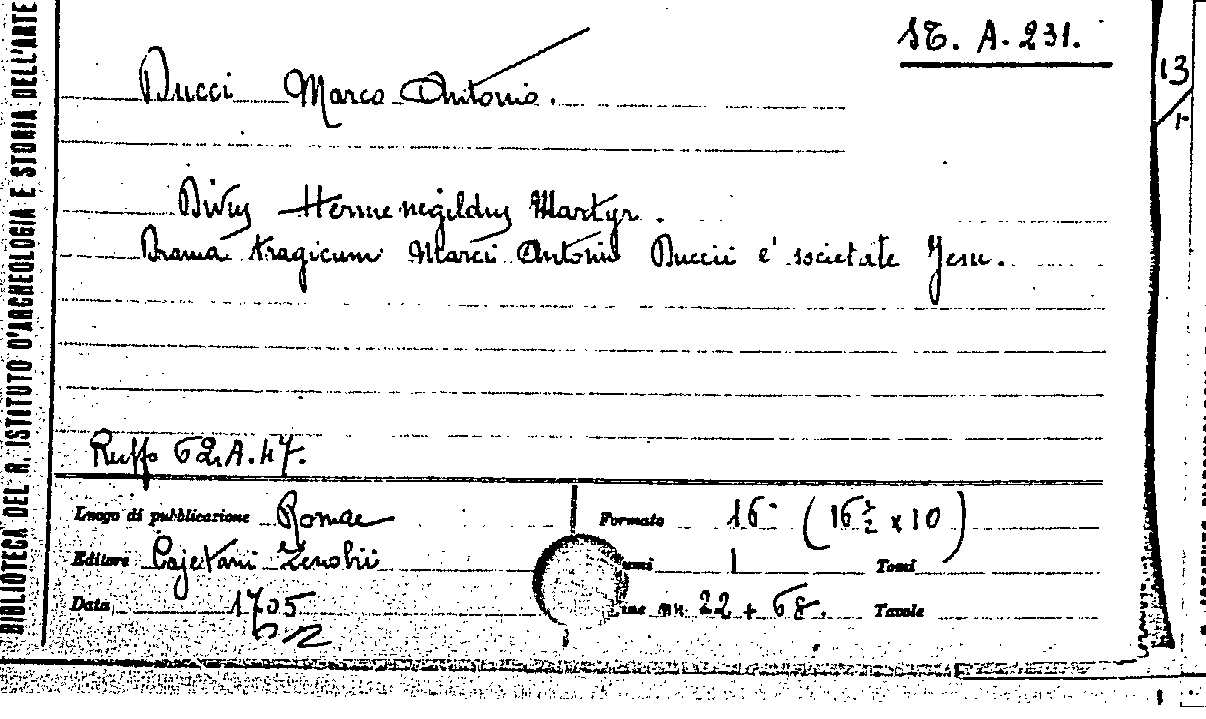 BIBLIOTECA DEL R. ISTITUTO D'ARCHEOLOGIA E STORIA DELL'ARTE
ST. A. 231.
13
Ducci Marco Antonio.
Divus Hermenegildus Martyr.
Drama tragicum Marci Antonii Duccii e' societate Jesu.
Ruffo 62.A.47.
Luogo di pubblicazione Romae Formato 16° (16½ x 10)
Editore Cajetani Zenobii 1 Tomi
Data 1705 nn. 22 + 68. Tavole